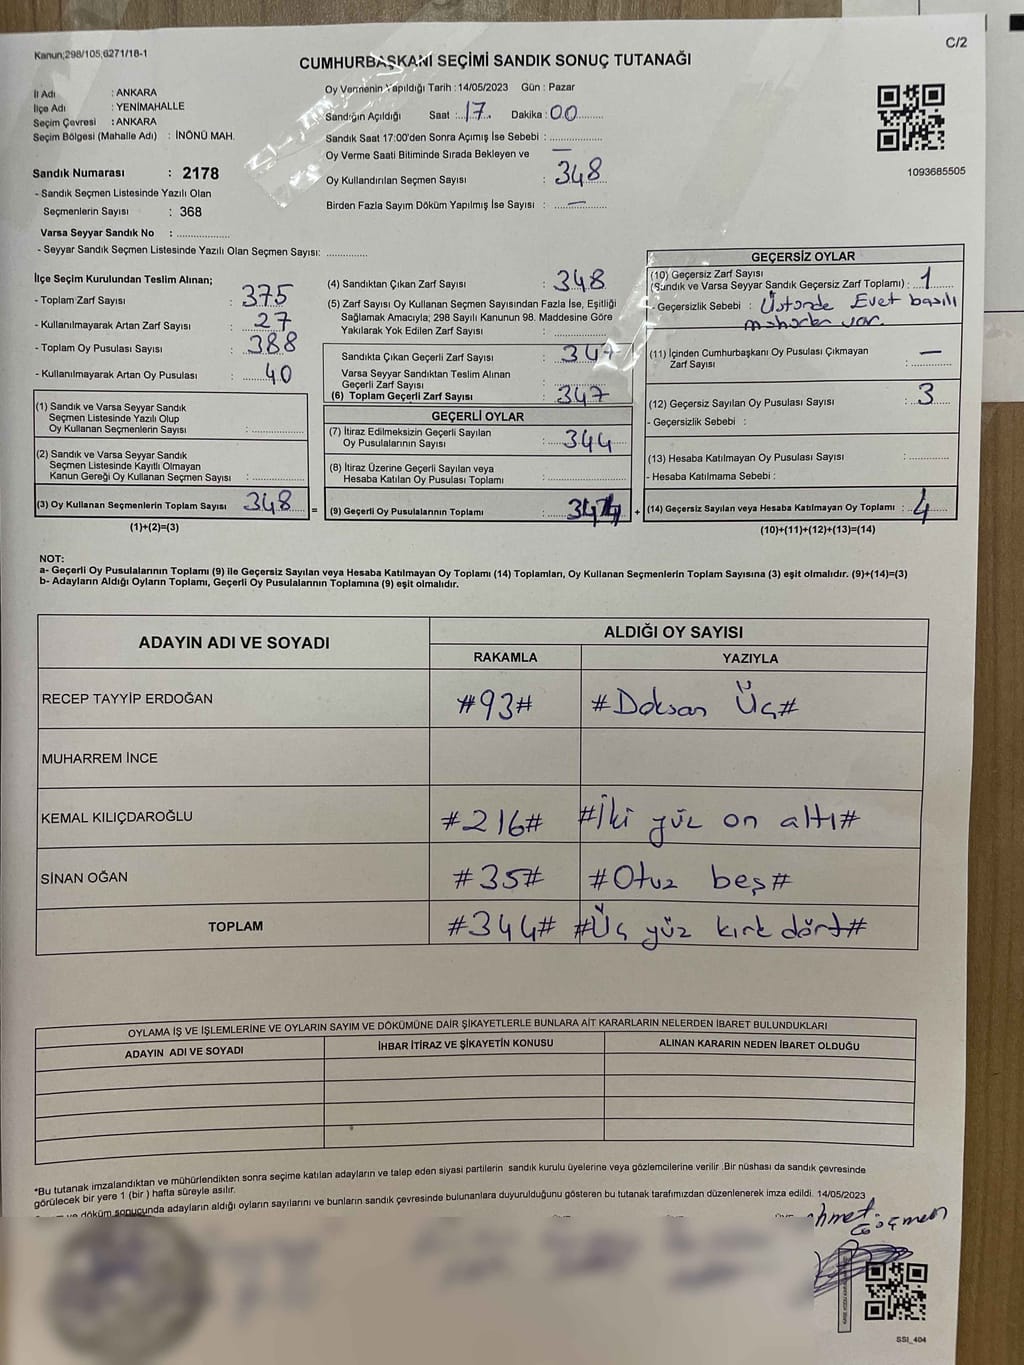 Kanun;298/105;6271/18-1
C/2
CUMHURBAŞKANI SEÇİMİ SANDIK SONUÇ TUTANAĞI
İl Adı : ANKARA
İlçe Adı : YENİMAHALLE
Seçim Çevresi : ANKARA
Seçim Bölgesi (Mahalle Adı) : İNÖNÜ MAH.
Sandık Numarası : 2178
- Sandık Seçmen Listesinde Yazılı Olan
Seçmenlerin Sayısı : 368
Varsa Seyyar Sandık No : ..................
- Seyyar Sandık Seçmen Listesinde Yazılı Olan Seçmen Sayısı: ..............
Oy Vermenin Yapıldığı Tarih :14/05/2023 Gün : Pazar
Sandığın Açıldığı Saat : 17 Dakika : 00
Sandık Saat 17:00'den Sonra Açımış İse Sebebi : —
Oy Verme Saati Bitiminde Sırada Bekleyen ve
Oy Kullandırılan Seçmen Sayısı : 348
Birden Fazla Sayım Döküm Yapılmış İse Sayısı : —
1093685505
İlçe Seçim Kurulundan Teslim Alınan;
- Toplam Zarf Sayısı : 375
- Kullanılmayarak Artan Zarf Sayısı : 27
- Toplam Oy Pusulası Sayısı : 388
- Kullanılmayarak Artan Oy Pusulası : 40
(1) Sandık ve Varsa Seyyar Sandık
Seçmen Listesinde Yazılı Olup
Oy Kullanan Seçmenlerin Sayısı : ..............
(2) Sandık ve Varsa Seyyar Sandık
Seçmen Listesinde Kayıtlı Olmayan
Kanun Gereği Oy Kullanan Seçmen Sayısı : ..............
(3) Oy Kullanan Seçmenlerin Toplam Sayısı 348 =
(1)+(2)=(3)
(4) Sandıktan Çıkan Zarf Sayısı : 348
(5) Zarf Sayısı Oy Kullanan Seçmen Sayısından Fazla İse, Eşitliği
Sağlamak Amacıyla; 298 Sayılı Kanunun 98. Maddesine Göre
Yakılarak Yok Edilen Zarf Sayısı : ..............
Sandıkta Çıkan Geçerli Zarf Sayısı : 347
Varsa Seyyar Sandıktan Teslim Alınan
Geçerli Zarf Sayısı : ..............
(6) Toplam Geçerli Zarf Sayısı : 347
GEÇERLİ OYLAR
(7) İtiraz Edilmeksizin Geçerli Sayılan
Oy Pusulalarının Sayısı : 344
(8) İtiraz Üzerine Geçerli Sayılan veya
Hesaba Katılan Oy Pusulası Toplamı : ..............
(9) Geçerli Oy Pusulalarının Toplamı : 344 +
GEÇERSİZ OYLAR
(10) Geçersiz Zarf Sayısı
(Sandık ve Varsa Seyyar Sandık Geçersiz Zarf Toplamı) : 1
- Geçersizlik Sebebi : Üstünde Evet basılı
mühürler var.
(11) İçinden Cumhurbaşkanı Oy Pusulası Çıkmayan
Zarf Sayısı : —
(12) Geçersiz Sayılan Oy Pusulası Sayısı : 3
- Geçersizlik Sebebi :
(13) Hesaba Katılmayan Oy Pusulası Sayısı : ..........
- Hesaba Katılmama Sebebi :
(14) Geçersiz Sayılan veya Hesaba Katılmayan Oy Toplamı : 4
(10)+(11)+(12)+(13)=(14)
NOT:
a- Geçerli Oy Pusulalarının Toplamı (9) ile Geçersiz Sayılan veya Hesaba Katılmayan Oy Toplamı (14) Toplamları, Oy Kullanan Seçmenlerin Toplam Sayısına (3) eşit olmalıdır. (9)+(14)=(3)
b- Adayların Aldığı Oyların Toplamı, Geçerli Oy Pusulalarının Toplamına (9) eşit olmalıdır.
ADAYIN ADI VE SOYADI
ALDIĞI OY SAYISI
RAKAMLA YAZIYLA
RECEP TAYYİP ERDOĞAN #93# #Doksan Üç#
MUHARREM İNCE
KEMAL KILIÇDAROĞLU #216# #İki yüz on altı#
SİNAN OĞAN #35# #Otuz beş#
TOPLAM #344# #Üç yüz kırk dört#
OYLAMA İŞ VE İŞLEMLERİNE VE OYLARIN SAYIM VE DÖKÜMÜNE DAİR ŞİKAYETLERLE BUNLARA AİT KARARLARIN NELERDEN İBARET BULUNDUKLARI
ADAYIN ADI VE SOYADI İHBAR İTİRAZ VE ŞİKAYETİN KONUSU ALINAN KARARIN NEDEN İBARET OLDUĞU
*Bu tutanak imzalandıktan ve mühürlendikten sonra seçime katılan adayların ve talep eden siyasi partilerin sandık kurulu üyelerine veya gözlemcilerine verilir .Bir nüshası da sandık çevresinde
görülecek bir yere 1 (bir ) hafta süreyle asılır.
ve döküm sonucunda adayların aldığı oyların sayılarını ve bunların sandık çevresinde bulunanlara duyurulduğunu gösteren bu tutanak tarafımızdan düzenlenerek imza edildi. 14/05/2023
hmet Göçmen
SSI_404